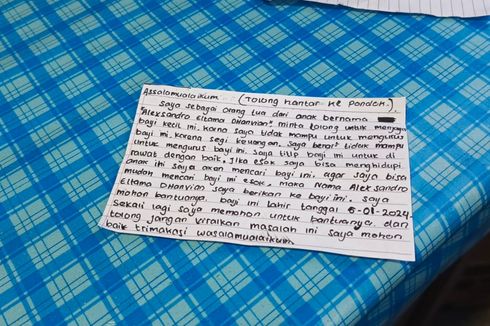 Assalamualaikum... (Tolong hantar ke Pondok.)
Saya sebagai orang tua dari anak bernama
"Alexsandro Eltama Dhanvian" minta tolong untuk menjaga
bayi kecil ini. karna saya tidak mampu untuk mengurus
bayi ini. karena segi keuangan. Saya benar² tidak mampu
untuk mengurus bayi ini. Saya titip bayi ini untuk di
rawat dengan baik. Jika esok saya bisa menghidupi
anak ini saya akan mencari bayi ini. agar saya bisa
mudah mencari bayi ini esok, maka Nama Alexsandro
Eltama Dhanvian saya berikan ke bayi ini. saya
mohon bantuanya. bayi ini lahir tanggal 6-01-2024.
Sekali lagi saya memohon untuk bantuanya. dan
tolong jangan viralkan masalah ini saya mohon
baik trimakasi wasalamualaikum